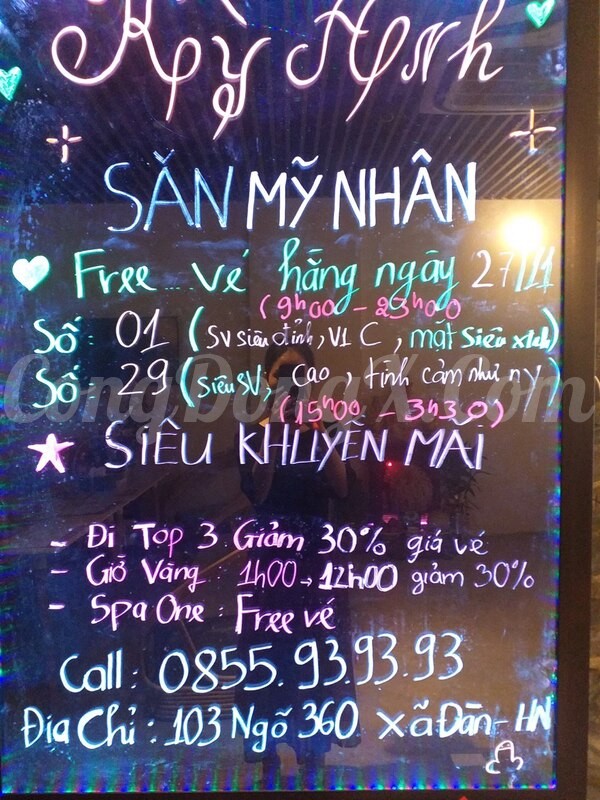 Kỳ Anh
SĂN MỸ NHÂN
Free vé hằng ngày 27/11
(9h00 - 23h00
Số: 01 (SV siêu đỉnh, V1 C, mặt siêu xinh)
Số: 29 (Siêu SV, cao, tình cảm như ny)
(15h00 - 3h30)
CongDongX.Com
SIÊU KHUYẾN MÃI
- Đi Top 3 Giảm 30% giá vé
- Giờ Vàng: 1h00 → 12h00 giảm 30%
- Spa One: Free vé
Call: 0855.93.93.93
Địa Chỉ: 103 Ngõ 360 xã Đàn - HN